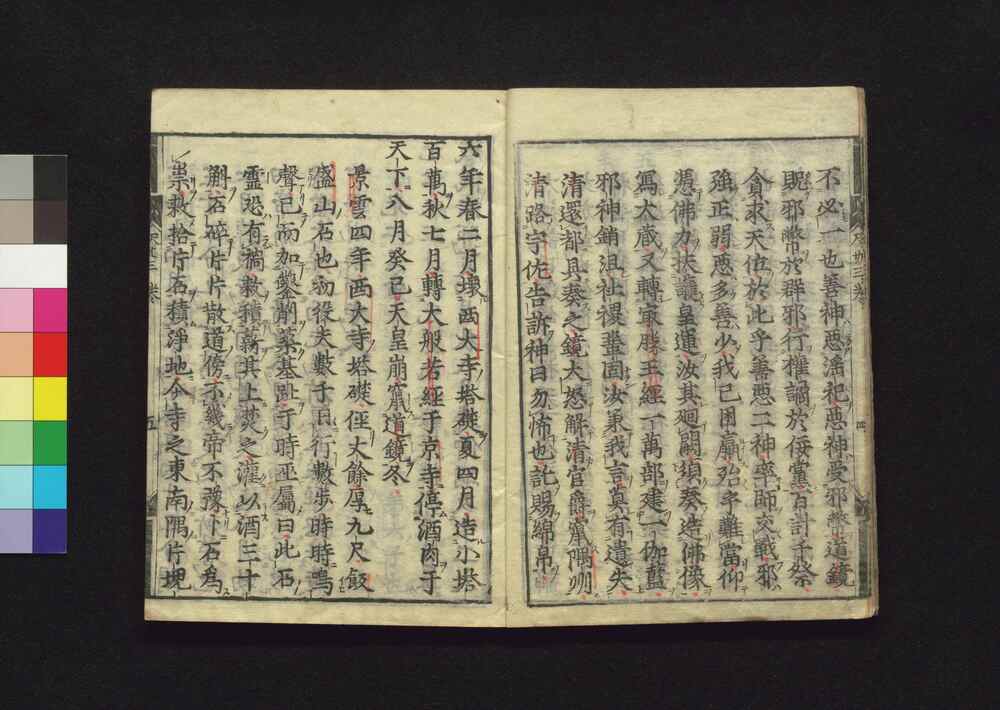 不必一也善神惡滛祀惡神愛邪幣道鏡
賑邪幣於群邪行權譎於佞黨百計千祭
貪求天位於此乎善惡二神率師交戰邪
強正弱惡多善少我已困羸殆乎難當仰
憑佛力扶護皇運汝其廻闕須奏造佛像
寫大藏又轉最勝王經一萬部建一伽藍
邪神銷沮社稷鞏固汝秉我言莫有遺失
清還都具奏之鏡大怒解清官爵竄隅州
清路宇佐告訴神曰勿怖也託賜綿帛
六年春二月壞西大寺塔礎夏四月造小塔
百萬秋七月轉大般若經于京寺停酒肉于
天下八月癸巳天皇崩竄道鏡冬
景雲四年西大寺塔礎徑丈餘厚九尺飯
盛山石也初役夫數千日行數步時時鳴
聲已而加鑿削築基趾于時巫屬曰此石
靈恐有禍敕積薪其上焚之灌以酒三十
斛石碎片片散道傍不幾帝不豫卜石爲
祟敕拾片石積淨地今寺之東南隅片塊
四
五